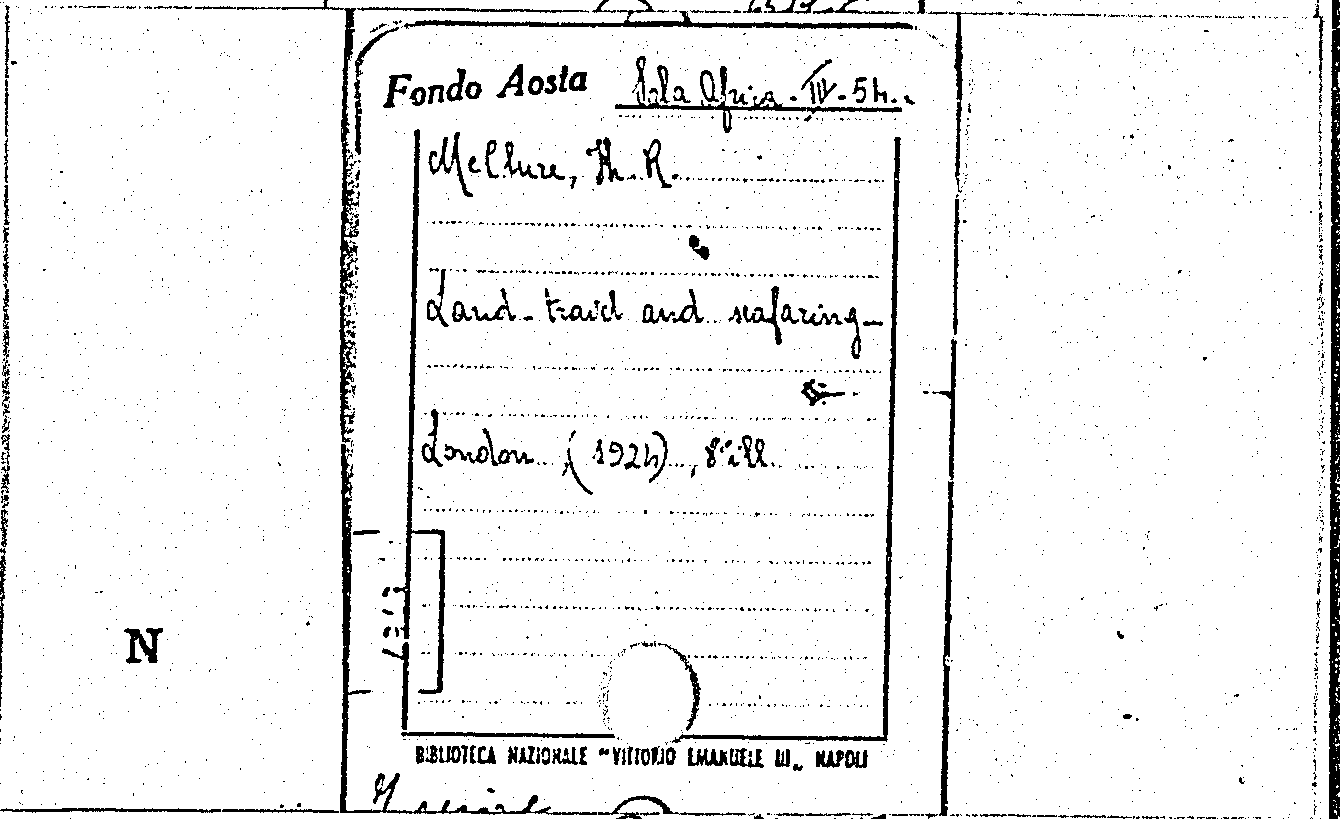 Fondo Aosta Sala Africa. IV. 54.
McClure, H. R.
Land-travel and seafaring-
London (1924), 8° ill.
N
BIBLIOTECA NAZIONALE "VITTORIO EMANUELE III„ NAPOLI